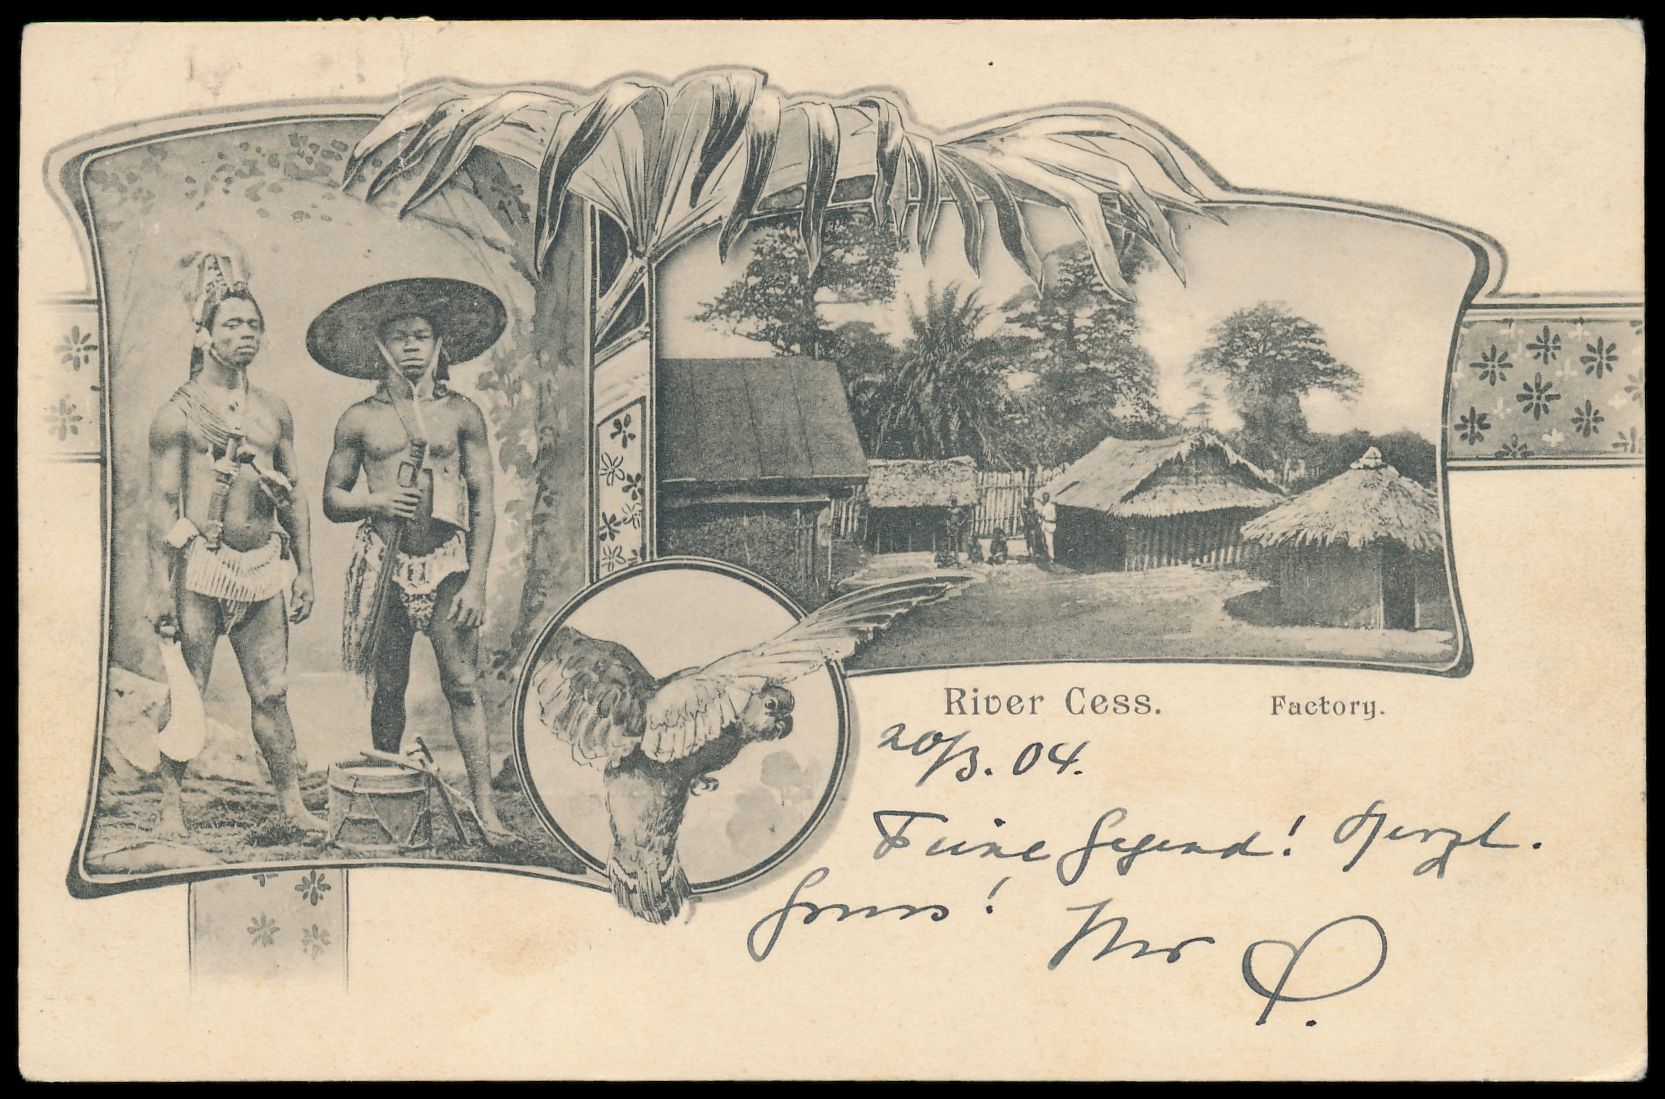 River Cess. Factory.
20/3. 04.
Feine Gegend! Herzl.
Gruss! Ihr P.